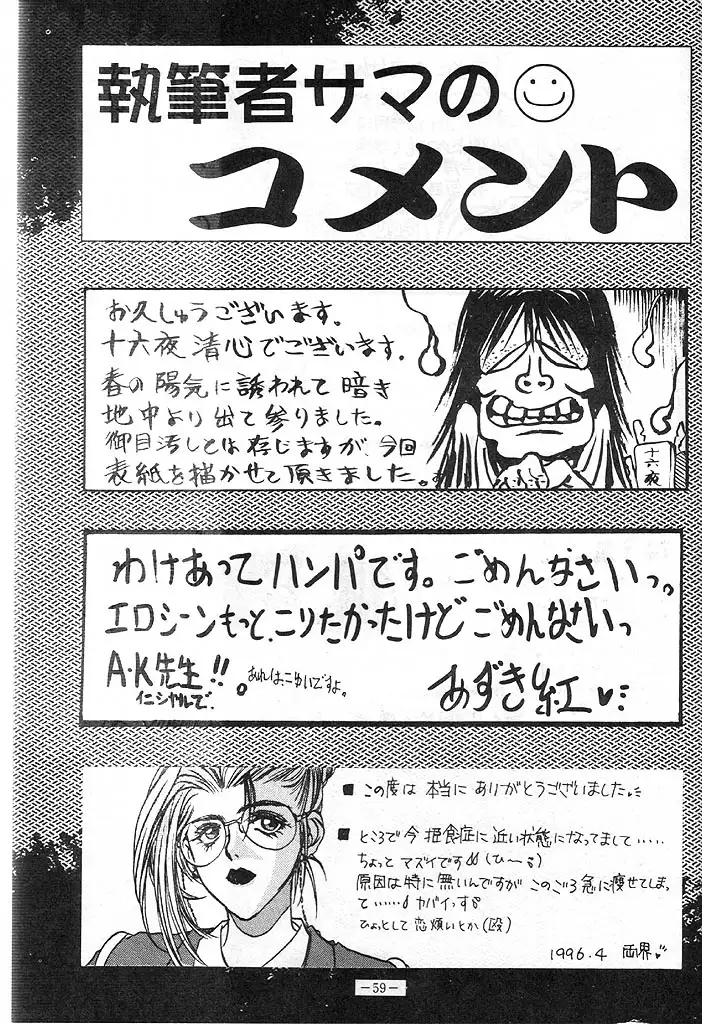 執筆者サマの
コメント
お久しゅうございます。
十六夜 清心でございます。
春の陽気に誘われて 暗き
地中より出て参りました。
御目汚しとは存じますが、今回
表紙を描かせて頂きました。
十六夜
わけあってハンパです。ごめんなさいっ。
エロシーンもっと、こりたかったけどごめんなさいっ
A・K先生!!。
イニシャルで。
あずき紅
■ この度は 本当に ありがとうございました。
■ ところで今 拒食症に近い状態になってまして……
ちょっと マズイです(ひ〜)
原因は特に無いんですが このごろ急に痩せてしまっ
て……ヤバイっす
ひょっとして 恋煩いとか(殴)
1996.4 両界
−59−